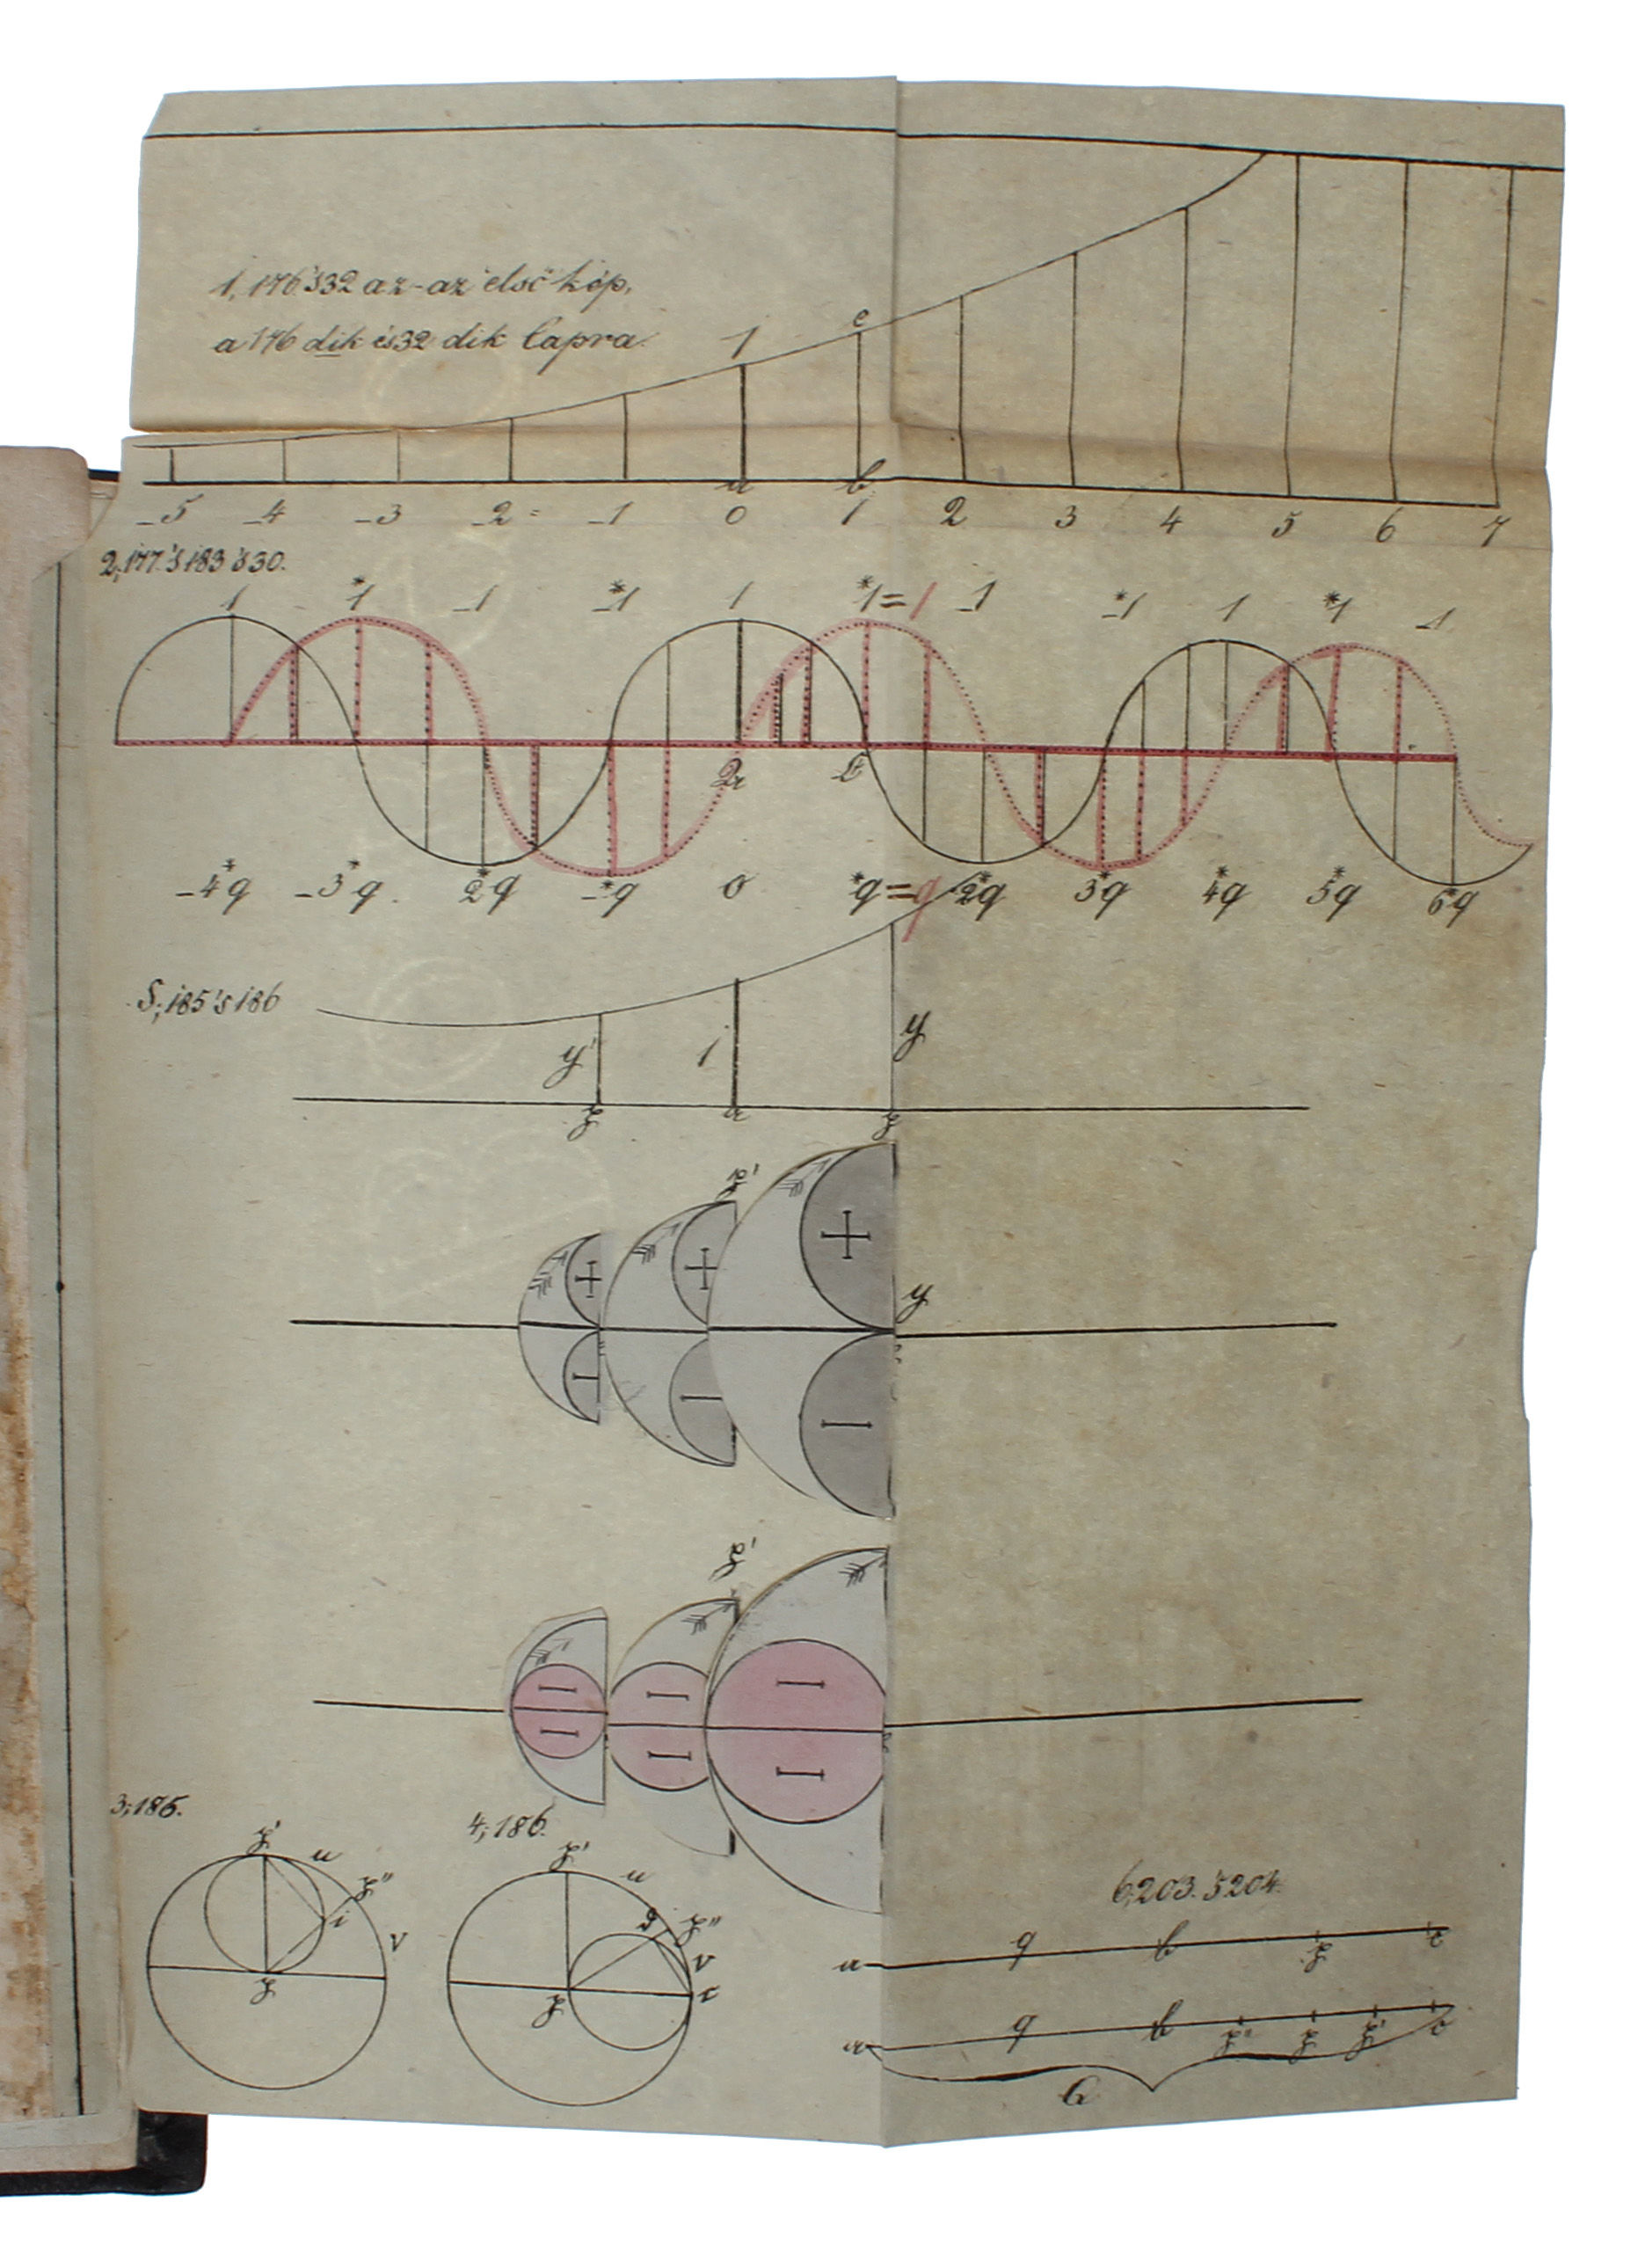 1, 176 's 32 az-az első kép,
a 176 dik és 32 dik lapra.
1
e
a b
-5 -4 -3 -2 -1 0 1 2 3 4 5 6 7
2; 177 's 183 's 30.
1 *1 -1 -*1 1 *1=1 -1 -*1 1 *1 -1
-4*q -3*q -*q 0 *q=q 2*q 3*q 4*q 5*q 6*q
5; 185 's 186
y' 1 y
+ + +
y
3; 186.
4; 186.
u
i
v
u
v
6, 203. 's 204.
a q b
a q b